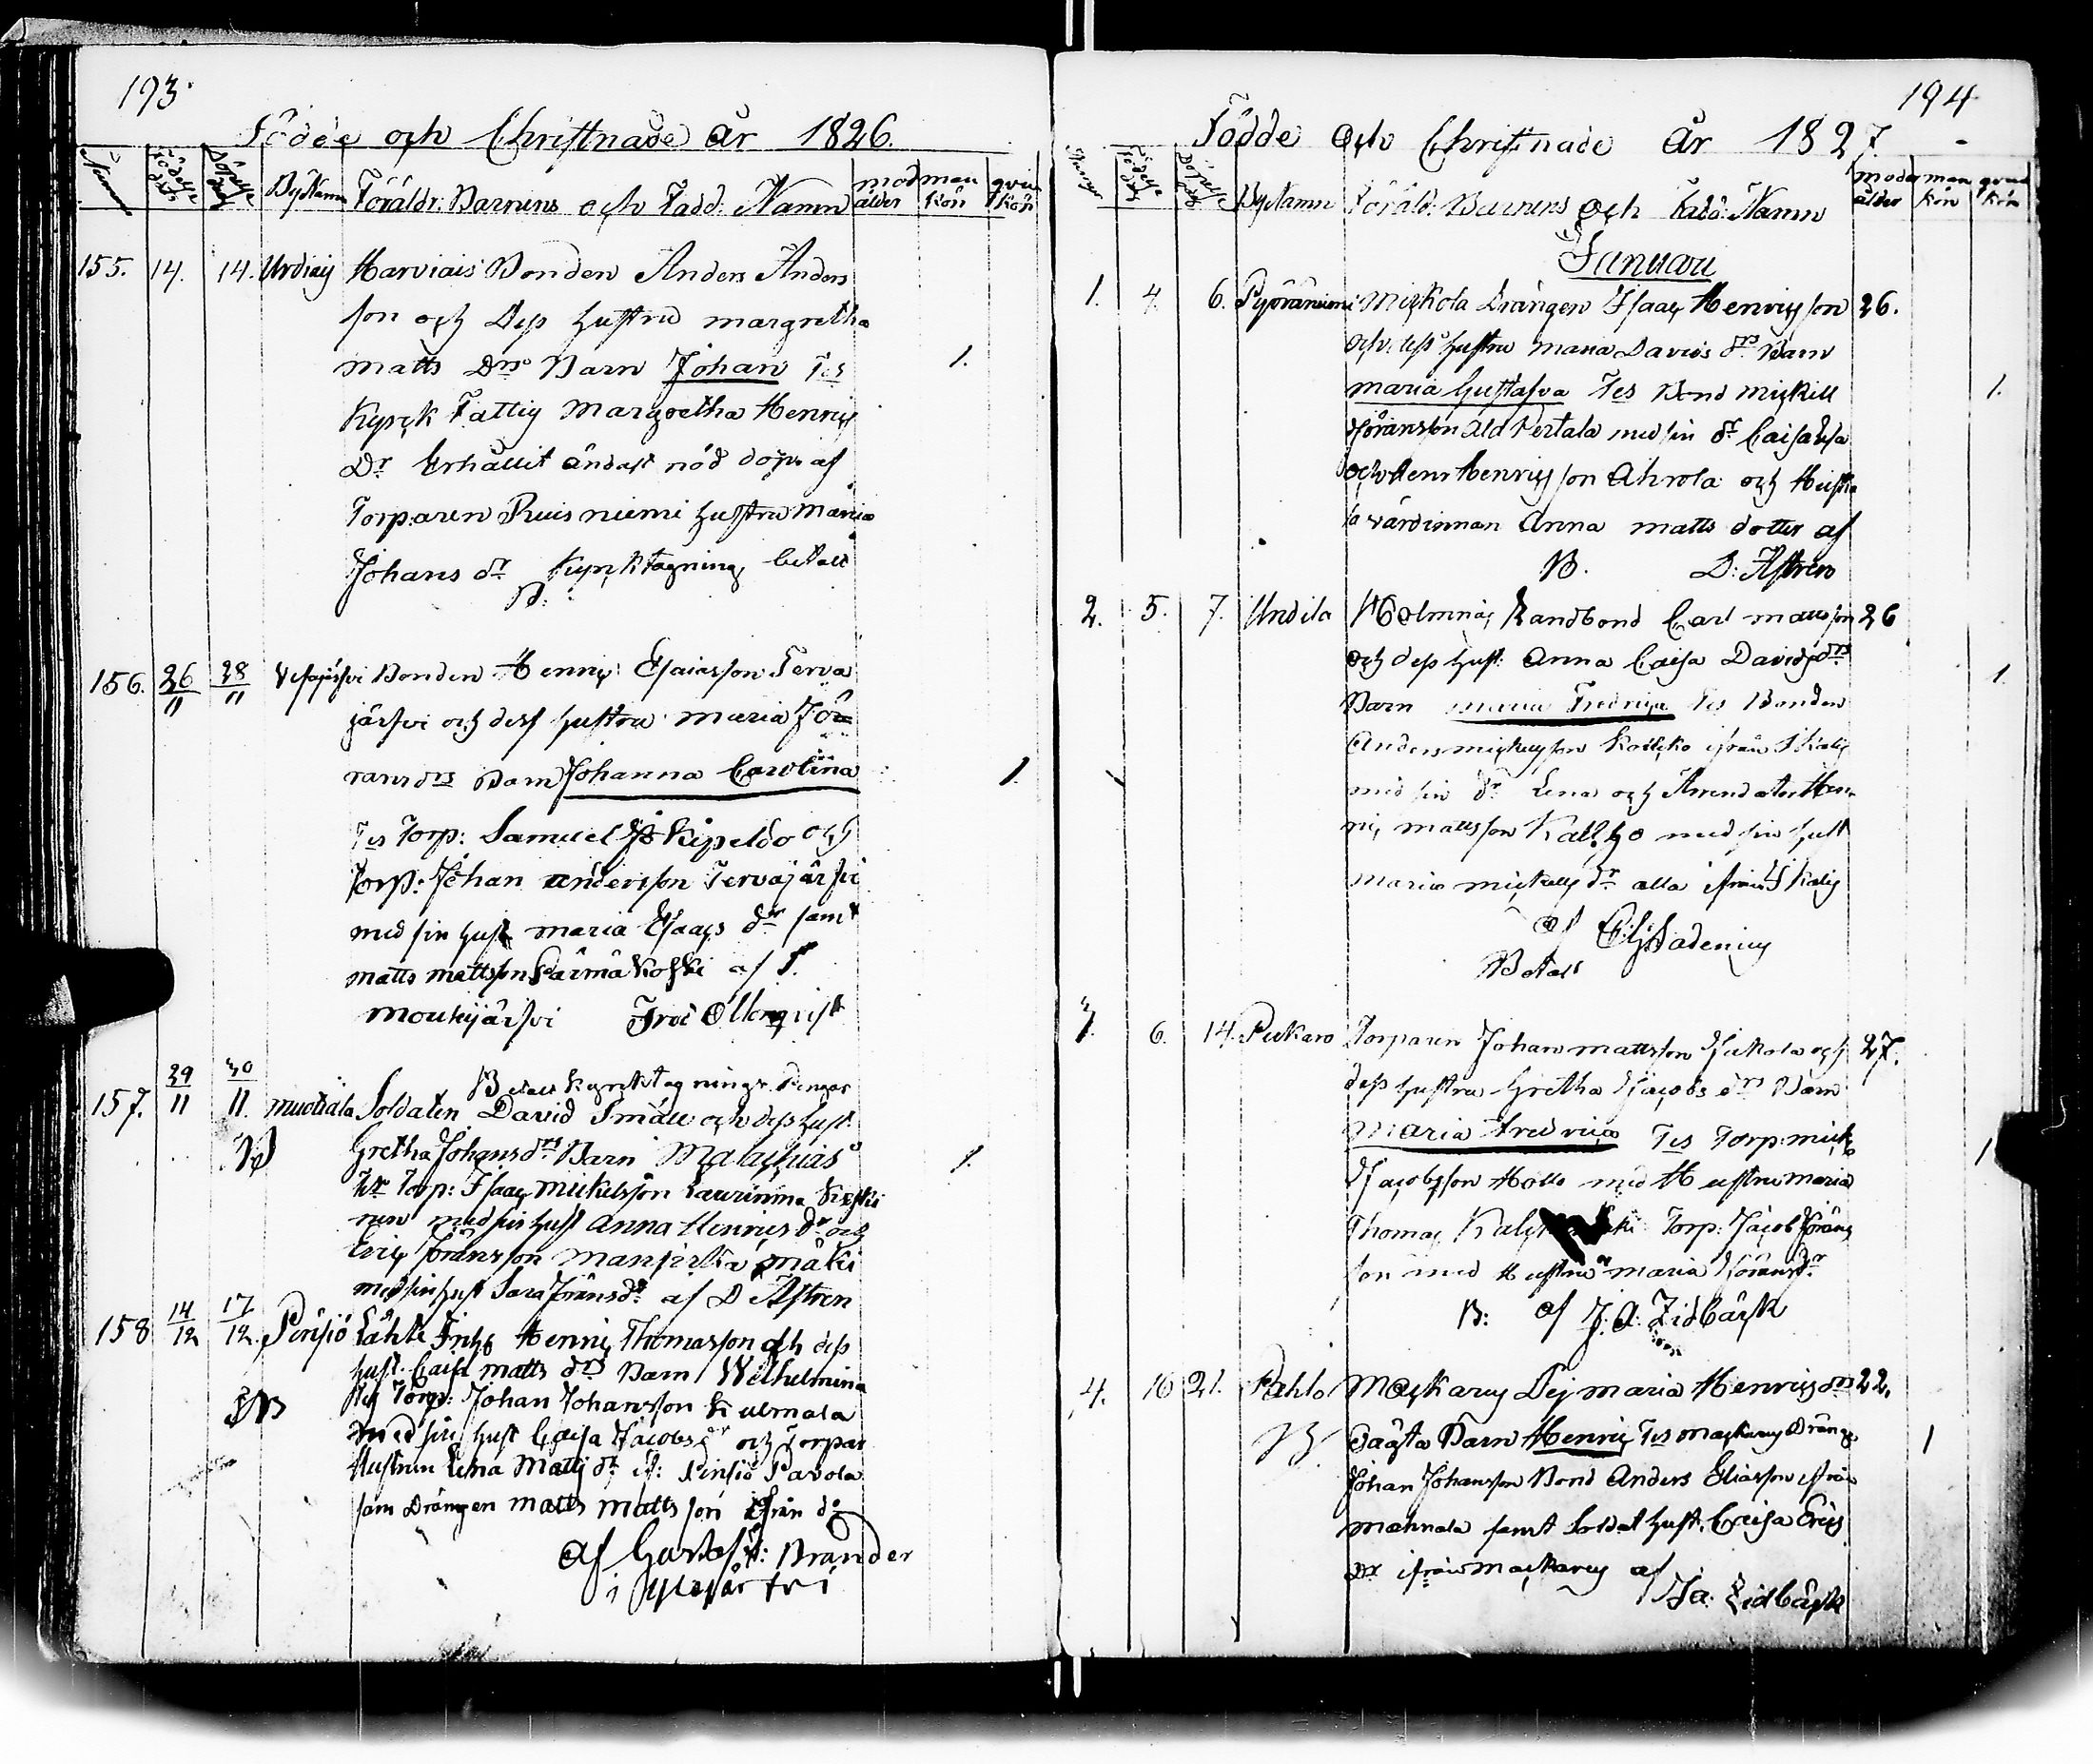 193.
Födde och Christnade år 1826.
Num Födelse dag Döpelse dag By Namn Föräldr: Barnens och Fadd: Namn mod ålder man kön qvin kön
155. 14. 14. Urdiais Harviais Bonden Anders Anders
son och Dess hustru margretha
matts Drs Barn Johan Tes 1.
Kyrck Fattig Margretha Henrics
Dr Erhållit ändast nöd dope af
Torparen Ruisniemi hustru Maria
Johans dr Kyrcktagning betalt
B:
156. 26/11 28/11 Vesajärfvi Bonden Henric Esaiasson Terva
järfvi och dess hustru maria Jö=
ransdrs Barn Johanna Carolina 1.
Tes Torp: Samuel Kipeldo och
Torp: Johan andersson Tervajärfvi
med sin hust maria Esaacs dr samt
matts mattsson Särmäkoski af
mouhijärfvi Fred Ollonqvist
Betalt kyrcktagnings Pengar
157. 29/11 30/11. muotiala Soldaten David Småll och dess hust
B Gretha Johans drs Barn Malachias 1.
Tes Torp: Isaac Mickelsson Laurinina
nen med sin hust Anna Henrics dr och
Eric Jöransson Mansickamäki
med sin hust Sara Jörans dr af D Astren
158 14/12 17/12. Pinsiö Lähte Inhs Henric Thomasson och dess
hust. Caisa matts drs Barn Wilhelmina
B Tes Torp: Johan Johansson Kulmala
med sin hust Caisa Jacobs dr och Torpar
Hustrun Lena Matts dr if: Pinsiö Pavola
sam Drängen matts mattsson ifrån do
af Gustaf A: Brander
i Ylöjärfvi
194
Födde och Christnade År 1827.
Födelse dag Döpelse dag By Namn Föräld: Barnens och Fadd: Namn moder ålder man kön qvin kön
Januari
1. 4. 6. Pyöräniemi Mickola Drängen Isaac Henricsson 26.
och dess hustru maria Davids drs Barn
maria Gustafva Tes Bond mickell 1.
Jöransson ald Pertala med sin dr Caisa Lisa
och Henr Henricsson Ahrola och Heiski
la värdinnan Anna matts dotter af
B. D: Astren
2. 5. 7. Undila Holmnäs Landbond Carl mattsson 26
och dess hust: Anna Caisa Davids drs 1
Barn maria Fredrica Tes Bonden
Anders mickelsson ifrån Skalis
med sin dr Lena och Arendator Hen
ric mattsson Kallho med sin hust
maria mickells dr alla ifrån Skalis
af Hadenius
Betalt
3. 6. 14. Pukaro Torparen Johan mattsson och 27.
dess hustru Gretha Jacobs drs Barn
Maria Fredrica Tes Torp: mick
Jacobsson Hollo med Hustru maria 1
Thomas Torp: Jacob Jörans
son med Hustru maria Jörans dr
B: af J. A: Zidbäck
4. 16 21. Pahlo Mackarus Pej maria Henrics drs 22.
B. Oägta Barn Henric Tes mackarus Dränge 1
Johan Johansson Bond Anders Eliasson ifrån
mahnala samt Soldat hust. Caisa Erics
dr ifrån mackarus af
Ja: Zidbäck